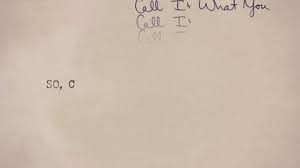 Call It What You
Call It
Call
SO, C